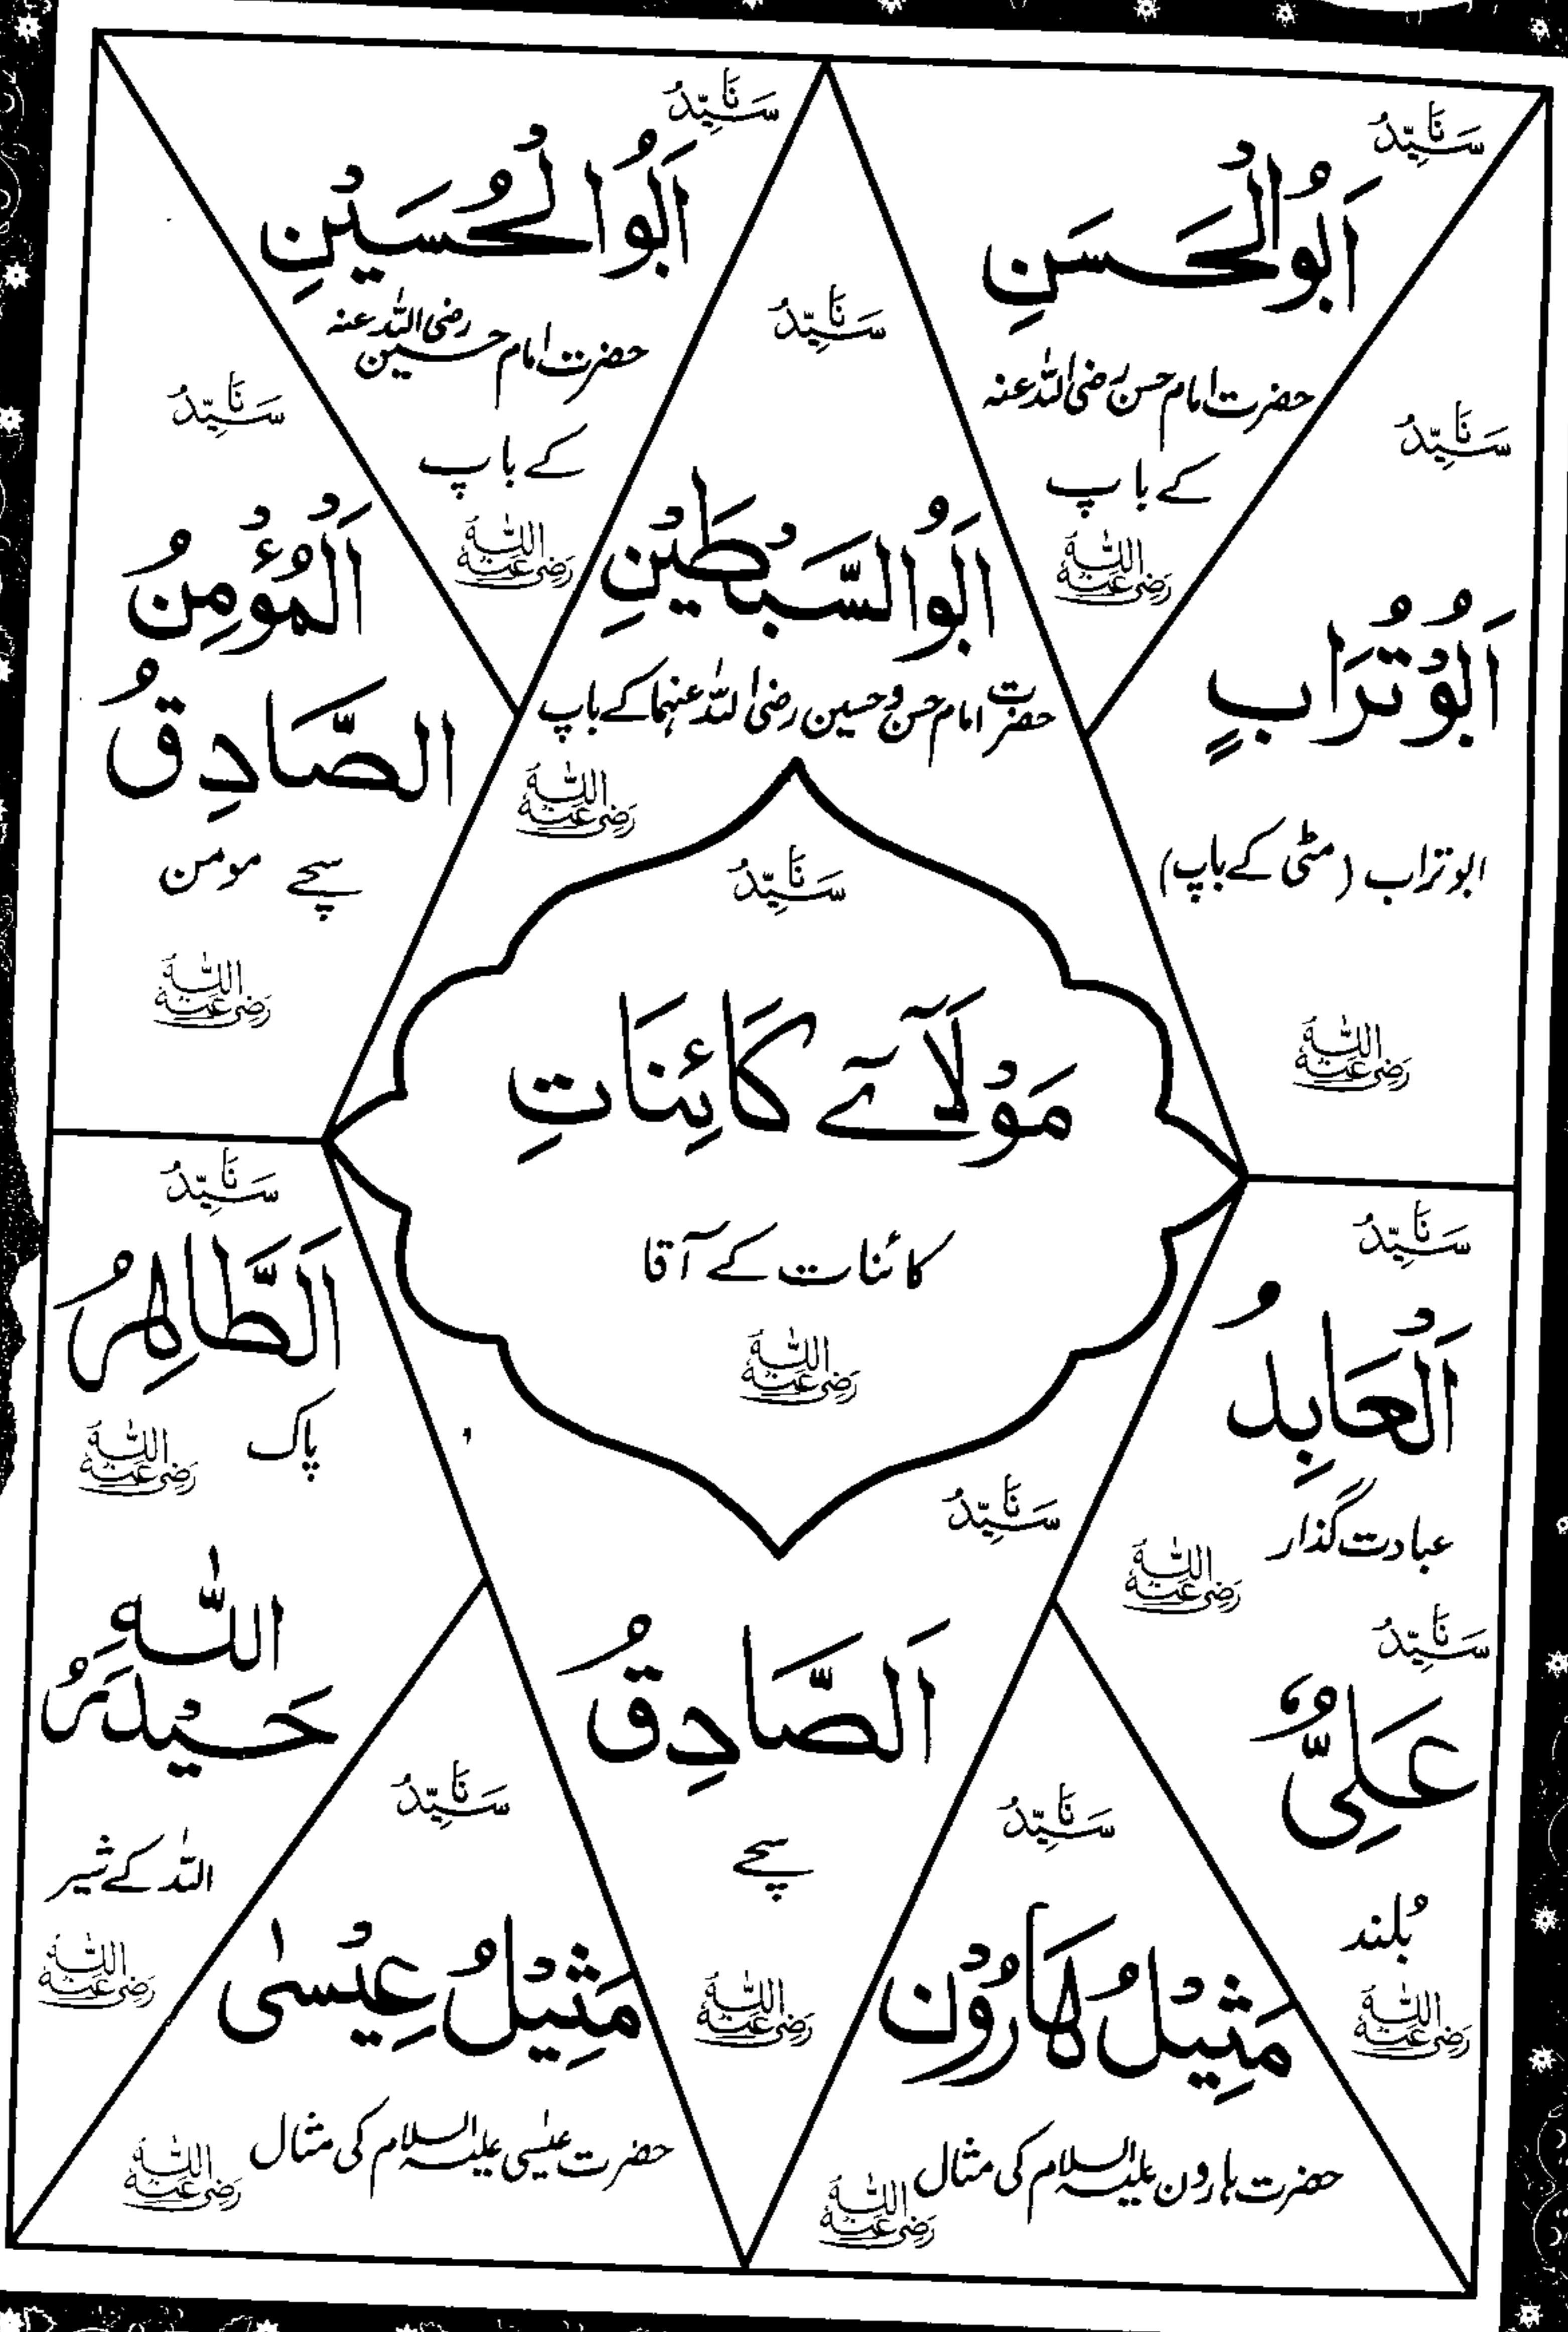 سَيِّدُنَا
اَبُوالْحَسَنِ
حضرت امام حسن رضی اللہ عنہ
کے باپ
رَضِیَ اللّٰہُ عَنْہُ
سَيِّدُنَا
اَبُوْا لْحُسَیْنِ
حضرت امام حسین رضی اللہ عنہ
کے باپ
رَضِیَ اللّٰہُ عَنْہُ
سَيِّدُنَا
اَبُوْ تُرَابٍ
ابو تراب (مٹی کے باپ)
رَضِیَ اللّٰہُ عَنْہُ
سَيِّدُنَا
اَبُوالسَّبْطَيْنِ
حضرت امام حسن و حسین رضی اللہ عنہما کے باپ
رَضِیَ اللّٰہُ عَنْہُ
سَيِّدُنَا
اَلْمُؤْمِنُ
الصَّادِقُ
سچے مومن
رَضِیَ اللّٰہُ عَنْہُ
سَيِّدُنَا
مَوْلَآئے کَائِنَاتِ
کائنات کے آقا
رَضِیَ اللّٰہُ عَنْہُ
سَيِّدُنَا
اَلْعَابِدُ
عبادت گذار
رَضِیَ اللّٰہُ عَنْہُ
سَيِّدُنَا
اَلطَّاہِرُ
پاک
رَضِیَ اللّٰہُ عَنْہُ
سَيِّدُنَا
عَلِیٌّ
بُلند
رَضِیَ اللّٰہُ عَنْہُ
سَيِّدُنَا
اَلصَّادِقُ
سچے
رَضِیَ اللّٰہُ عَنْہُ
اللّٰہِ
حَیْدَرُ
اللہ کے شیر
رَضِیَ اللّٰہُ عَنْہُ
سَيِّدُنَا
مَثِیْلُ ہَارُوْن
حضرت ہارون علیہ السلام کی مثال
رَضِیَ اللّٰہُ عَنْہُ
سَيِّدُنَا
مَثِیْلُ عِیْسٰی
حضرت عیسٰی علیہ السلام کی مثال
رَضِیَ اللّٰہُ عَنْہُ